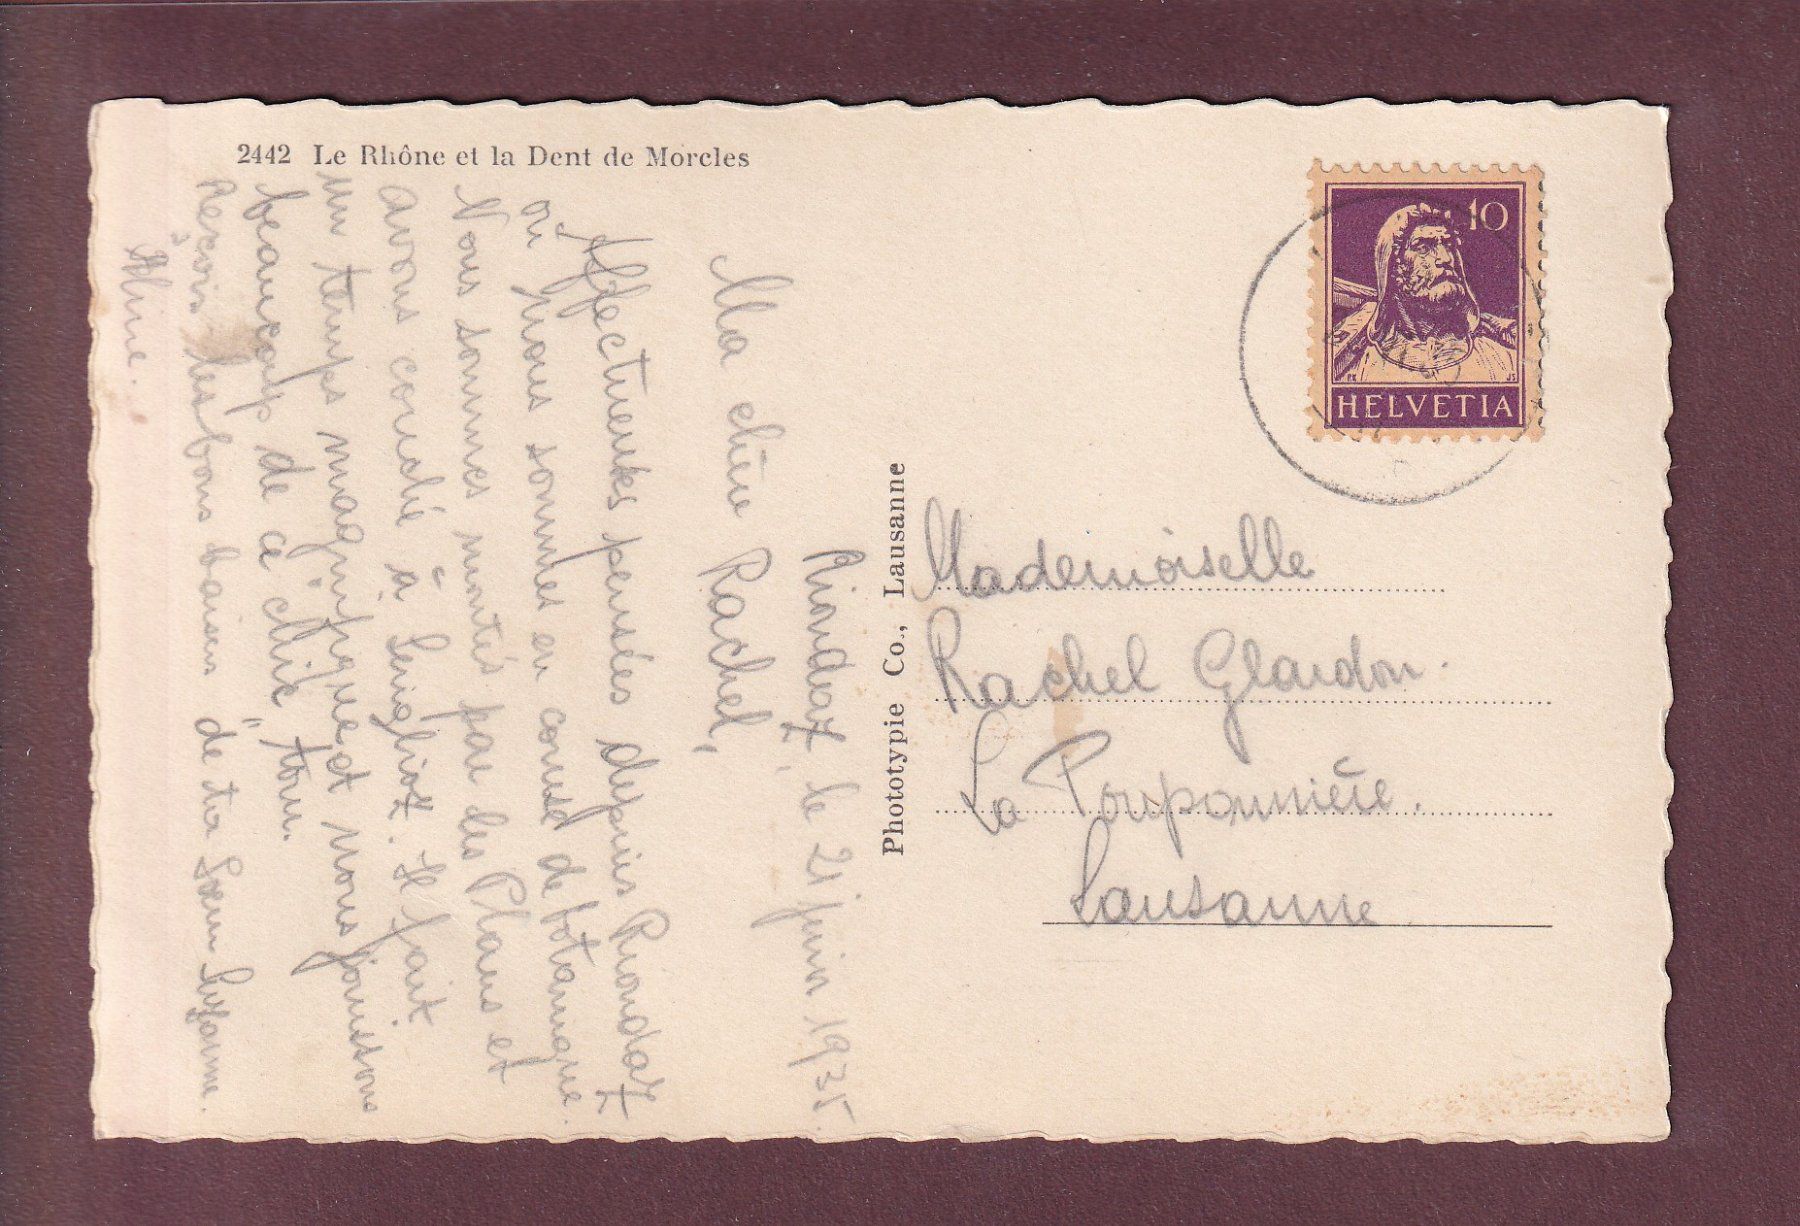 2442 Le Rhône et la Dent de Morcles
Riondaz, le 21 juin 1935.
Ma chère Rachel,
Affectueuses pensées depuis Riondaz
où nous sommes en course de botanique.
Nous sommes montés par les Plans et
avons couché à . Il fait
un temps magnifique et nous jouissons
beaucoup de ce chic " tour.
Reçois les bons baisers de ta Soeur Suzanne.
Aline.
Phototypie Co., Lausanne
10
HELVETIA
Mademoiselle
Rachel Glardon.
La Pouponnière.
Lausanne